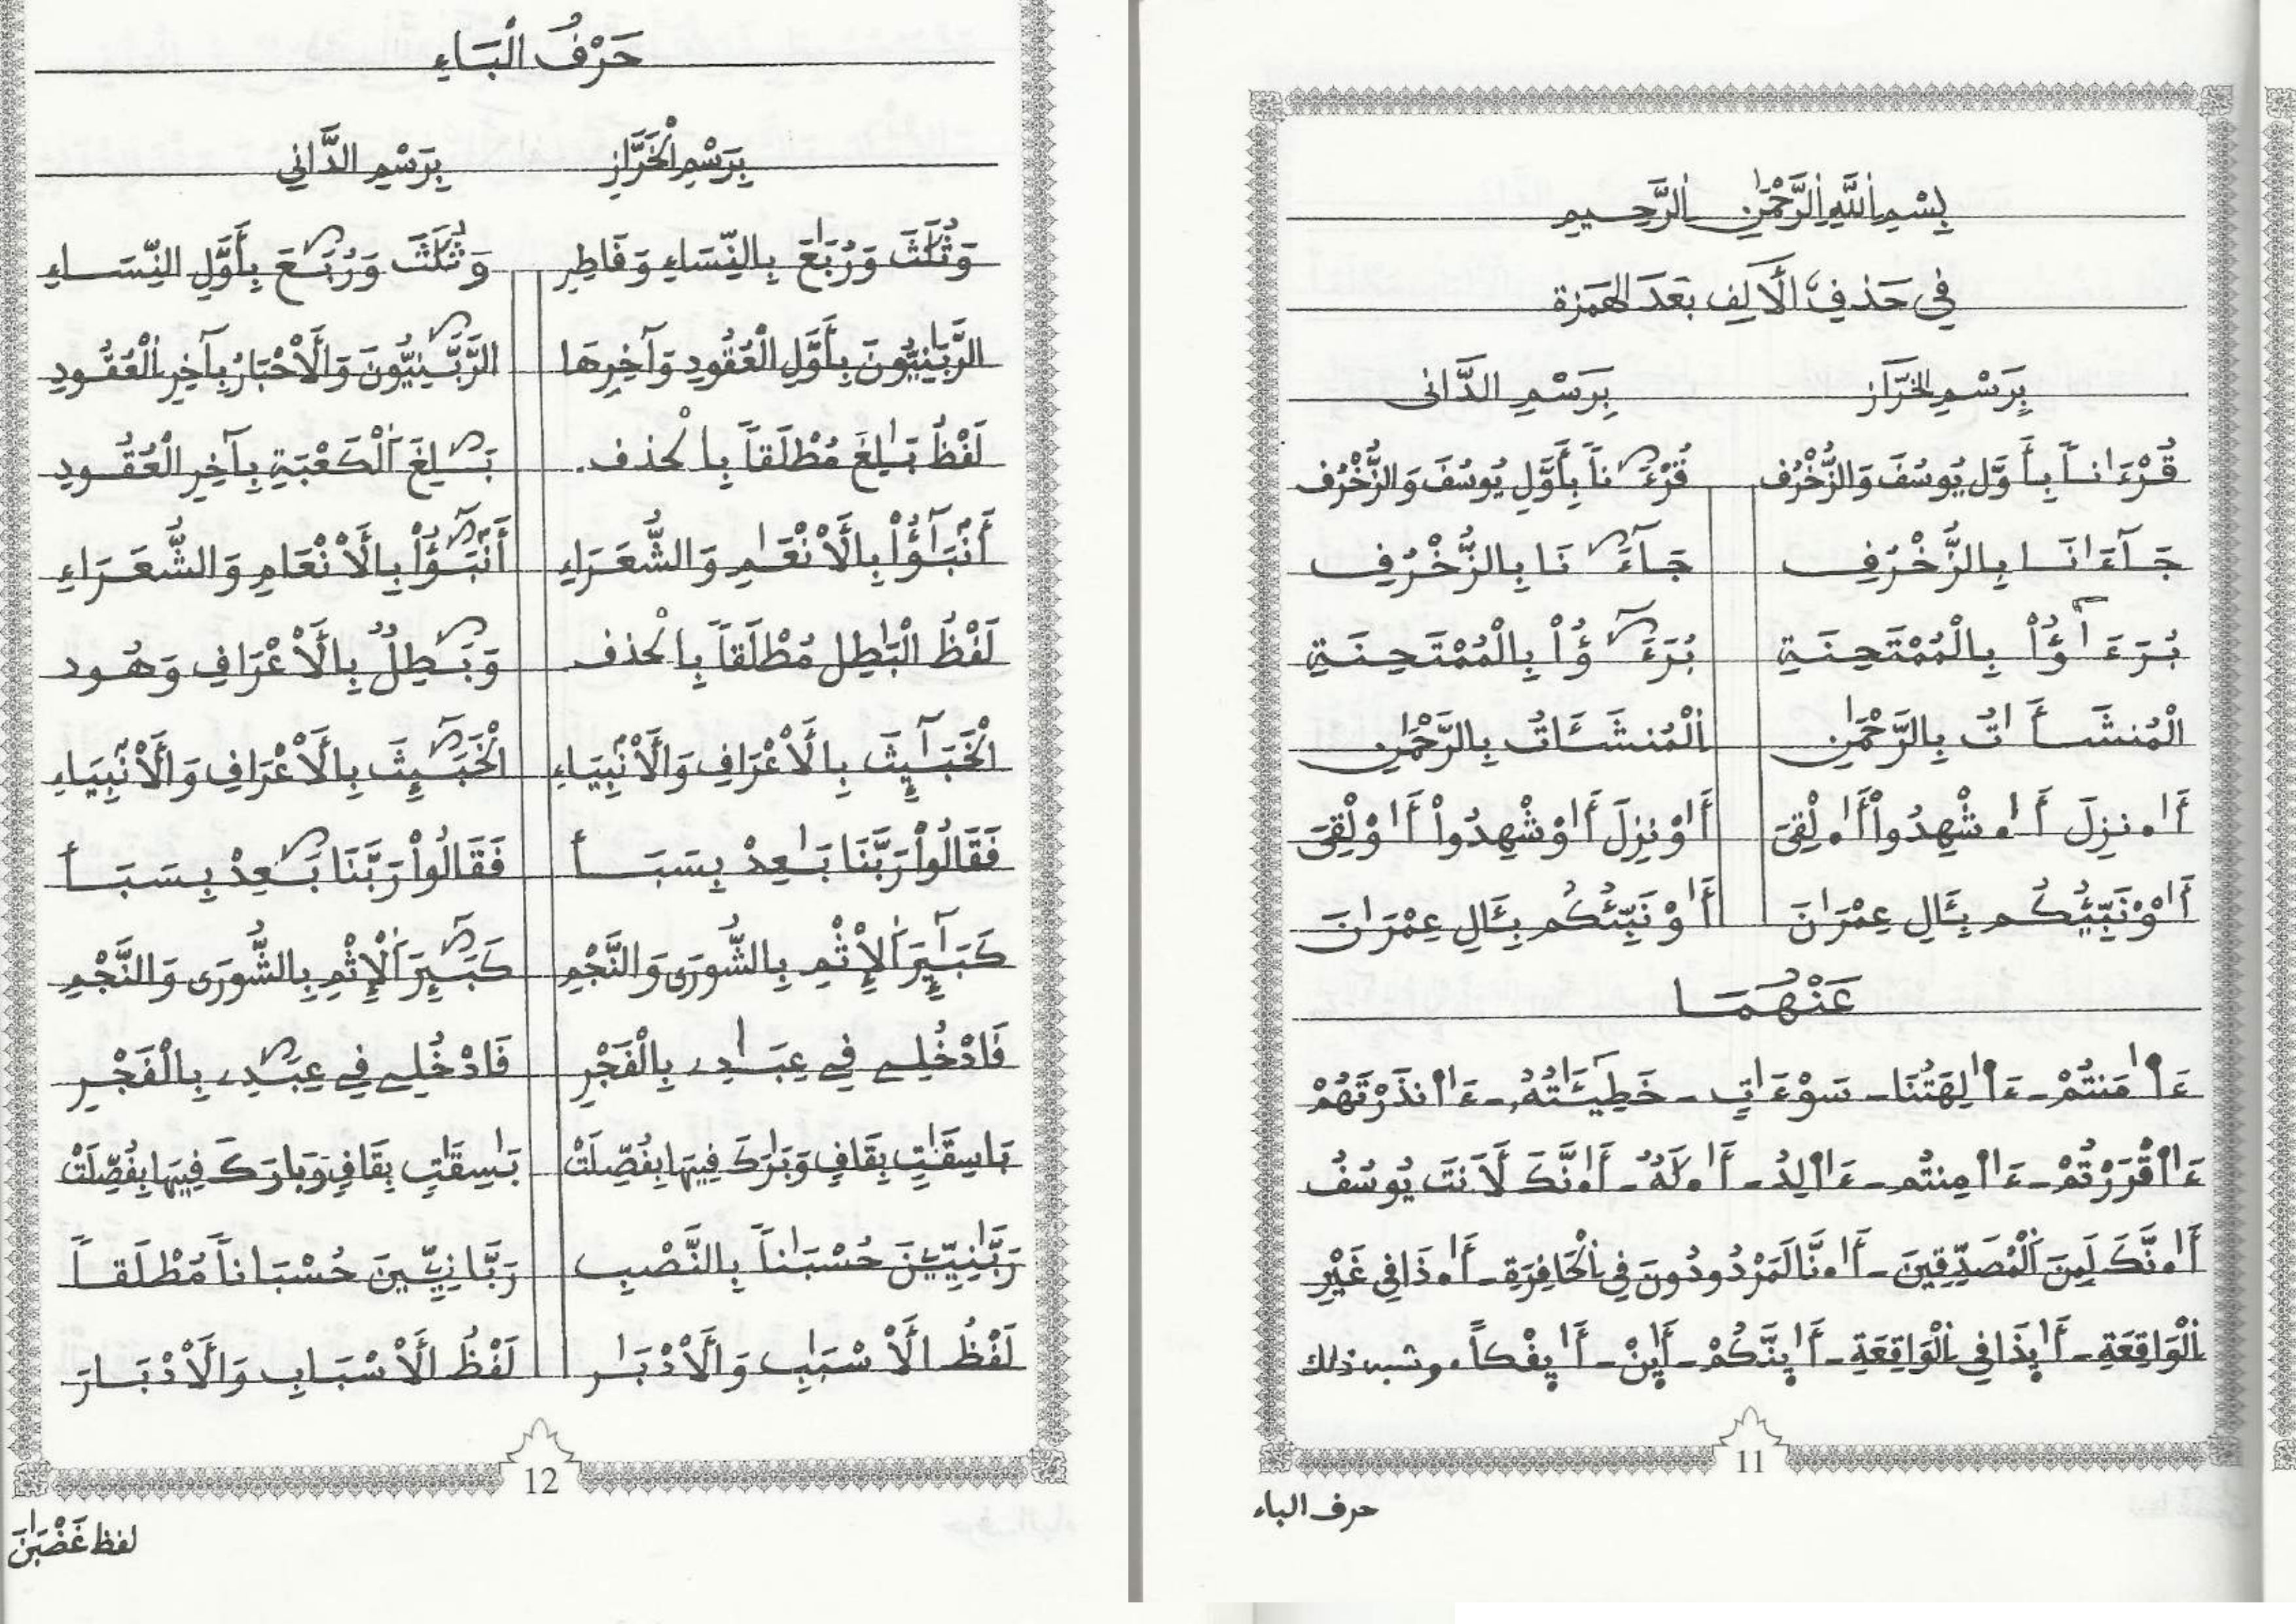 بِسْمِ اللَّهِ الرَّحْمَٰنِ الرَّحِيمِ
فِي حَذْفِ الْأَلِفِ بَعْدَ الْهَمْزَة
بِرَسْمِ الْخَرَّازِ بِرَسْمِ الدَّانِي
قُرْءَٰناً بِأَوَّلِ يُوسُفَ وَالزُّخْرُفِ قُرْءَ نَاً بِأَوَّلِ يُوسُفَ وَالزُّخْرُفِ
جَآءَٰنَا بِالزُّخْرُفِ جَآءَ نَا بِالزُّخْرُفِ
بُرَءَٰٓؤُاْ بِالْمُمْتَحِنَةِ بُرَءَ ؤُاْ بِالْمُمْتَحِنَةِ
الْمُنشَأَٰتُ بِالرَّحْمَٰنِ اَلْمُنشَـَٔاتُ بِالرَّحْمَٰنِ
أَا۟نزِلَ أَا۟شْهِدُواْ أَا۟لْقِيَ أَا۟وْنزِلَ أَا۟وشْهِدُواْ أَا۟وْلْقِيَ
أَا۟وْنَبِّئُكُم بِـَٔالِ عِمْرَٰنَ أَا۟وْنَبِّئُكُم بِـَٔالِ عِمْرَٰنَ
عَنْهُمَا
ءَاٰ۬مَنتُمْ - ءَاٰ۬لِهَتُنَا - سَوْءَٰتِ - خَطِيٓـَٰٔتُهُۥ - ءَا۬نذَرْتَهُمْ
ءَا۬قْرَرْتُمْ - ءَا۬مِنتُم - ءَا۬لِدُ - أَا۟لَٰهٌ - أَا۟نَّكَ لَأَنتَ يُوسُفُ
أَا۟نَّكَ لَمِنَ اَلْمُصَدِّقِينَ - أَا۟نَّا لَمَرْدُودُونَ فِي اِلْحَافِرَةِ - أَا۟ذَا فِي غَيْرِ
اِلْوَاقِعَةِ - أَا۟يِذَا فِي اِلْوَاقِعَةِ - أَا۟يِنَّكُمْ - أَا۟يِنْ - أَا۟يِفْكاً . وشبه ذلك
11
حرف الباء
حَرْفُ الْبَاءِ
بِرَسْمِ الْخَرَّازِ بِرَسْمِ الدَّانِي
وَثُلَٰثَ وَرُبَٰعَ بِالنِّسَاءِ وَفَاطِرِ وَثُلَٰثَ وَرُبَعَ بِأَوَّلِ النِّسَاءِ
الرَّبَّٰنِيُّونَ بِأَوَّلِ الْعُقُودِ وَآخِرِهَا اَلرَّبَّنِيُّونَ وَالْأَحْبَارُ بِآخِرِ الْعُقُودِ
لَفْظُ بَٰلِغَ مُطْلَقاً بِالْحذف. بَلِغَ اَلْكَعْبَةِ بِآخِرِ الْعُقُودِ
أَنۢبَٰٓؤُاْ بِالْأَنْعَٰمِ وَالشُّعَرَاءِ أَنۢبَؤُاْ بِالْأَنْعَامِ وَالشُّعَرَاءِ
لَفْظُ الْبَٰطِل مُطْلَقاً بِالْحذف وَبَطِلٌ بِالْأَعْرَافِ وَهُود
الْخَبَٰٓئِثَ بِالْأَعْرَافِ وَالْأَنۢبِيَاءِ الْخَبَئِثَ بِالْأَعْرَافِ وَالْأَنۢبِيَاءِ
فَقَالُواْ رَبَّنَا بَٰعِدْ بِسَبَأ فَقَالُواْ رَبَّنَا بَعِدْ بِسَبَأ
كَبَٰٓئِرَ اَلْإِثْمِ بِالشُّورَى وَالنَّجْمِ كَبَئِرَ اَلْإِثْمِ بِالشُّورَى وَالنَّجْمِ
فَادْخُلِے فِے عِبَٰدِے بِالْفَجْرِ فَادْخُلِے فِے عِبَدِے بِالْفَجْرِ
بَاسِقَٰتٍ بِقَافِ وَبَٰرَكَ فِيهَا بِفُصِّلَتْ بَٰسِقَٰتٍ بِقَافِ وَبَارَكَ فِيهَا بِفُصِّلَتْ
رَبَّٰنِيِّينَ حُسْبَٰناً بِالنَّصْبِ رَبَّانِيِّينَ حُسْبَاناً مُطْلَقاً
لَفْظُ الْأَسْبَٰبِ وَالْأَدْبَٰر لَفْظُ الْأَسْبَابِ وَالْأَدْبَارَ
12
لفظ غَضْبَٰنَ